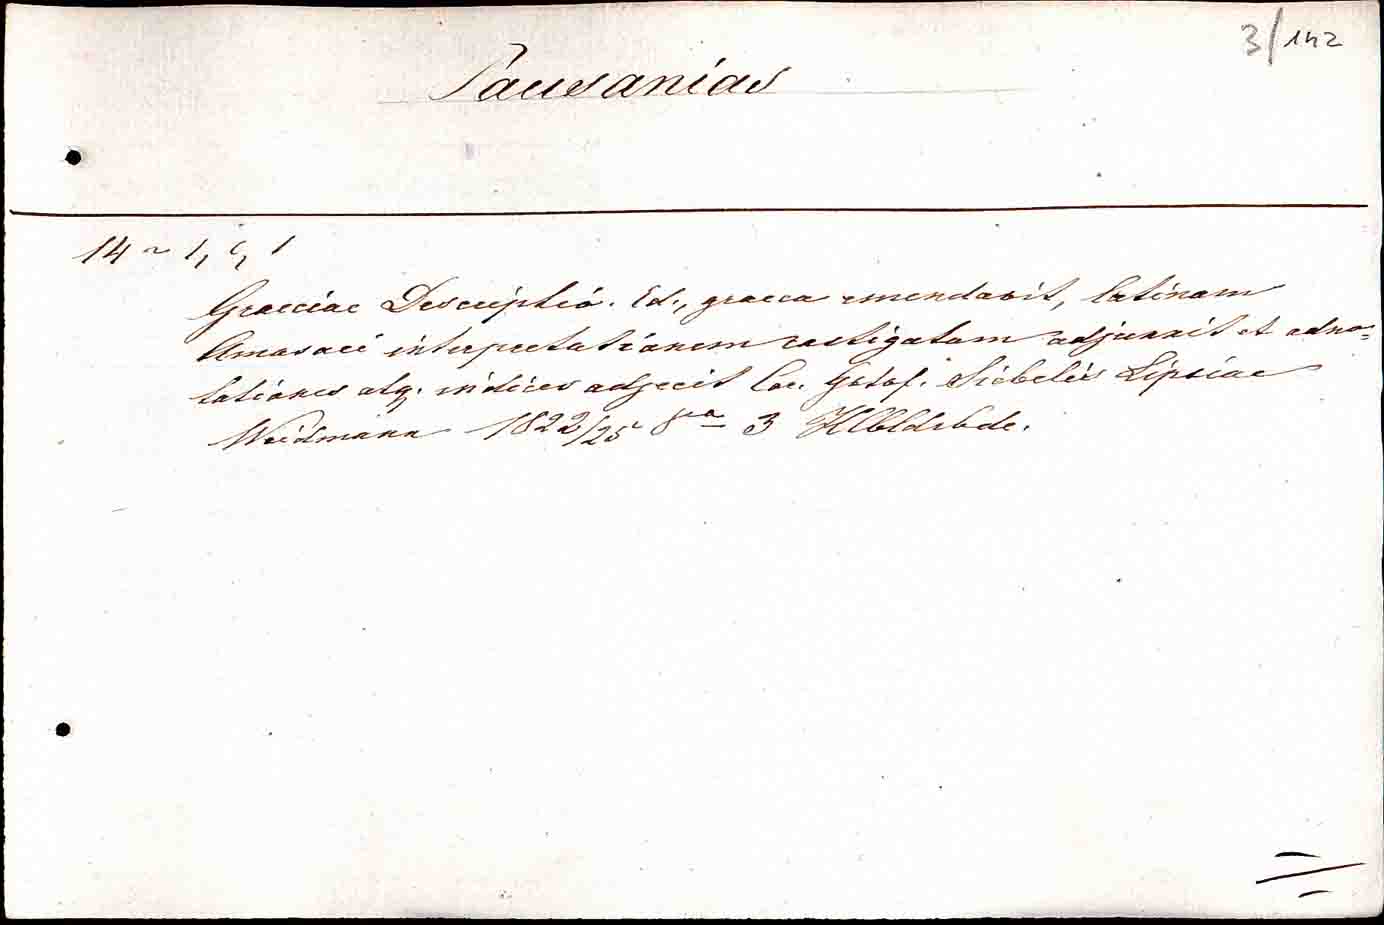 3/142
Pausanias
14 ~
Graeciae Descriptio. Ed., graeca emendavit, latinam
Amasaei interpretationem castigatam adjunxit et adno=
tationes atq. indices adjecit Car. Gotof. Siebelis Lipsiae
Weidmann 1822/25 8va 3 Hlbldrbde.